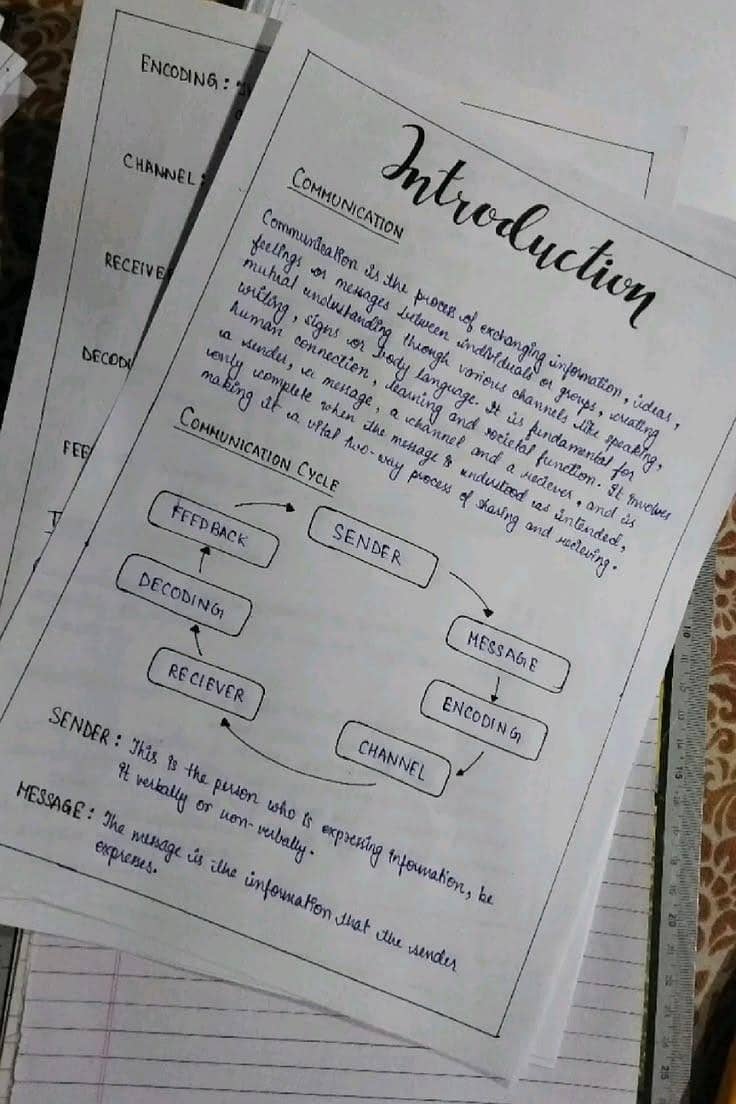 Introduction
COMMUNICATION
Communication is the process of exchanging information, ideas,
feelings or messages between individuals or groups, creating
mutual understanding through various channels like speaking,
writing, signs or body language. It is fundamental for
human connection, learning and societal function. It involves
a sender, a message, a channel and a reciever, and is
only complete when the message is understood as intended,
making it a vital two-way process of sharing and recieving.
COMMUNICATION CYCLE
FEEDBACK
SENDER
DECODING
MESSAGE
RECIEVER
ENCODING
CHANNEL
SENDER: This is the person who is expressing information, be
it verbally or non-verbally.
MESSAGE: The message is the information that the sender
expresses.
ENCODING:
CHANNEL:
RECEIVE
DECOD
FEE